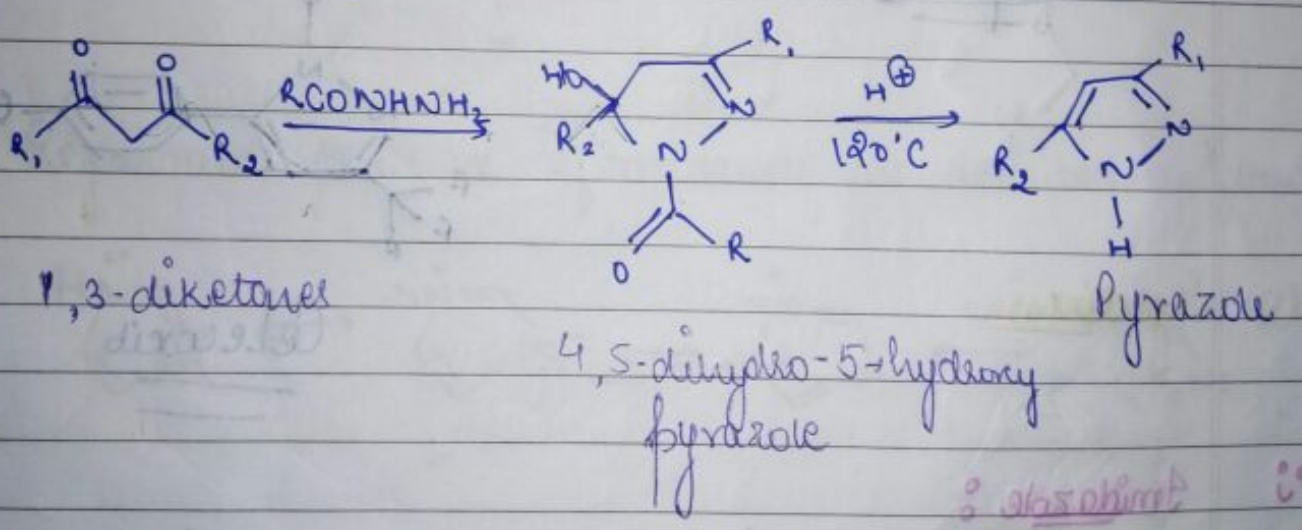 O O
R₁ R₂
RCONHNH₂
HO R₁
R₂ N N
O R
H⊕
120°C
R₁
R₂ N N
H
1,3-diketones
Pyrazole
4,5-dihydro-5-hydroxy
pyrazole